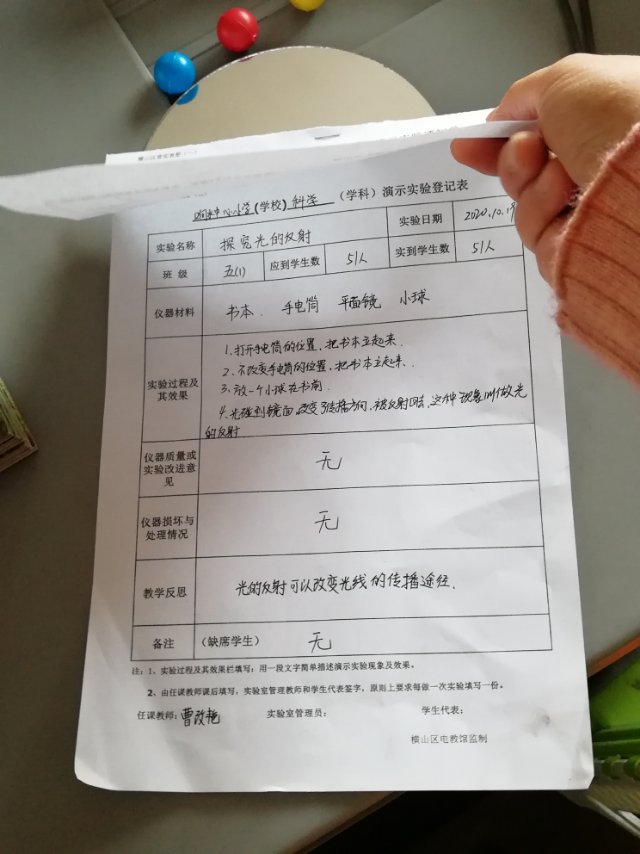 中心小学(学校) 科学 (学科)演示实验登记表
实验名称 探究光的反射 实验日期 2020.10.19
班 级 五(1) 应到学生数 51人 实到学生数 51人
仪器材料 书本. 手电筒 平面镜 小球
实验过程及其效果
1.打开手电筒的位置,把书本立起来.
2.不改变手电筒的位置,把书本立起来.
3.放一个小球在书前.
4.光碰到镜面改变了传播方向,被反射回去,这种现象叫做光
的反射
仪器质量或实验改进意见 无
仪器损坏与处理情况 无
教学反思 光的反射可以改变光线的传播途径.
备注 (缺席学生) 无
注:1、实验过程及其效果栏填写:用一段文字简单描述演示实验现象及效果。
2、由任课教师课后填写,实验室管理教师和学生代表签字,原则上要求每做一次实验填写一份。
任课教师:曹改艳 实验室管理员: 学生代表:
横山区电教馆监制